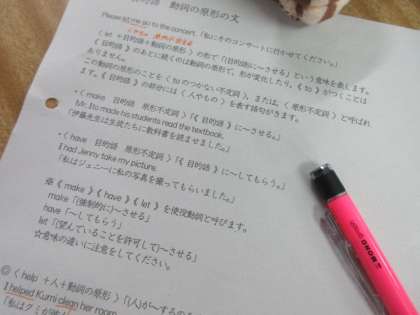 動詞の原形の文
Please let me go to the concert.「私にそのコンサートに行かせてください。」
〈 let ＋目的語＋動詞の原形 〉の形で「《目的語》に～させる」という意味を表します。
《目的語》のあとに続くのは動詞の原形で、形が変化したり、《 to 》がつくことは
ありません。
この動詞の原形のことを〈 to のつかない不定詞〉、または、〈原形不定詞〉と呼ばれ
ます。《目的語》の部分には〈人やもの〉を表す語句がきます。
・〈 make 目的語 原形不定詞 〉「《 目的語 》に～させる。」
Mr. Ito made his students read the textbook.
「伊藤先生は生徒たちに教科書を読ませました。」
・〈 have 目的語 原形不定詞 〉「《 目的語 》に～してもらう。」
I had Jenny take my picture.
「私はジェニーに私の写真を撮ってもらいました。」
《 make 》《 have 》《 let 》を使役動詞と呼びます。
make「(強制的に)～させる」
have「～してもらう」
let「(望んでいることを許可して)～させる」
☆意味の違いに注意をしてください。
◎〈 help ＋人＋動詞の原形 〉「(人)が～するのを
I helped Kumi clean her room.
「私はクミが
MONO